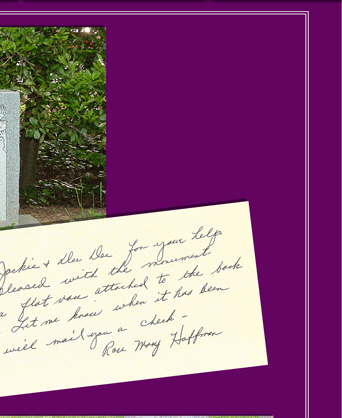 Jackie + Dee Dee for your help
pleased with the monument
a flat vase attached to the back
Let me know when it has been
will mail you a check -
Rose Mary Hoffman